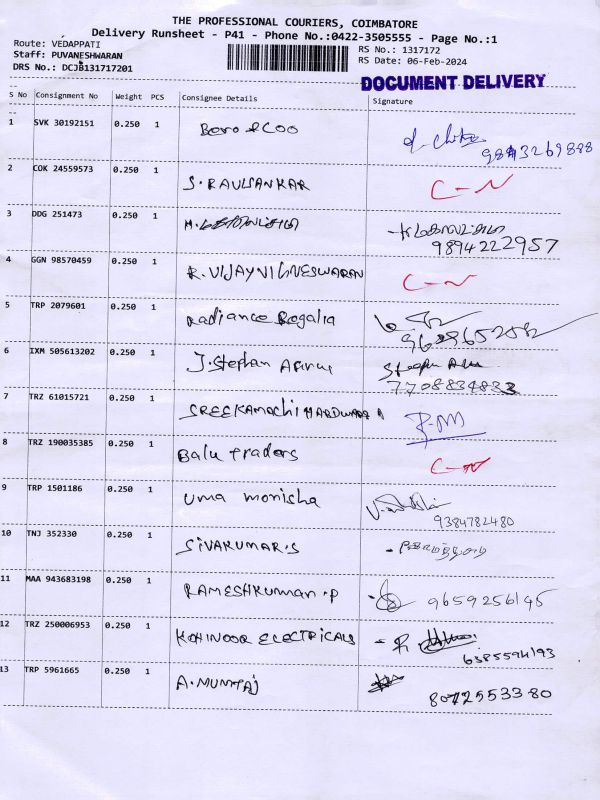 THE PROFESSIONAL COURIERS, COIMBATORE
Delivery Runsheet - P41 - Phone No.:0422-3505555 - Page No.:1
Route: VEDAPPATI
Staff: PUVANESHWARAN
DRS No.: DCJB131717201
RS No.: 1317172
RS Date: 06-Feb-2024
DOCUMENT DELIVERY
S No Consignment No Weight PCS Consignee Details Signature
1 SVK 30192151 0.250 1
9843269888
2 COK 24559573 0.250 1 S. RAVISANKAR C-N
3 DDG 251473 0.250 1
9894222957
4 GGN 98570459 0.250 1 R. VIJAYVIGNESWARAN C-N
5 TRP 2079601 0.250 1 Radiance Regalia
6 IXM 505613202 0.250 1 J. Stephan
7708834833
7 TRZ 61015721 0.250 1 SREEKAMACHI HARDWARE
8 TRZ 190035385 0.250 1 Balu Traders C-N
9 TRP 1501186 0.250 1 Uma monisha
9384782480
10 TNJ 352330 0.250 1 SIVAKUMAR.S
11 MAA 943683198 0.250 1 RAMESHKUMAR.P 9659256145
12 TRZ 250006953 0.250 1 KOHINOOR ELECTRICALS
6385594193
13 TRP 5961665 0.250 1 A. MUMTAJ
8072553380